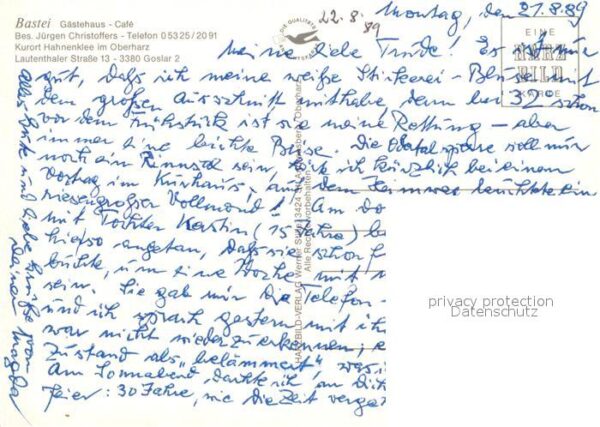 Bastei Gästehaus - Café
Bes. Jürgen Christoffers - Telefon 0 53 25 / 20 91
Kurort Hahnenklee im Oberharz
Lautenthaler Straße 13 - 3380 Goslar 2
22.8.89
Montag, den 21.8.89
EINE
HARZ
BILD
KARTE
Meine liebe Trude! Es ist nur
gut, daß ich meine weiße Stickerei-Bluse mit
dem großen Ausschnitt mithabe, denn bei 32° schon
vor dem Frühstück ist sie meine Rettung – aber
immer eine leichte Brise. Die soll nur
noch ein Rinnsal sein, ich kürzlich bei einem
Vortrag im Kurhaus, auf dem Heimweg leuchtete ein
riesengroßer Vollmond! Am Do
mit Tochter Kerstin (15 Jahre)
hiervon angetan, daß sie schon f
buchte, um eine Woche mit
sein. Sie gab mir die Telefon-
und ich sprach gestern mit ih
war nicht wiederzuerkennen,
Zustand als "belämmert" was
Am Sonnabend dachte ich an
feier: 30 Jahre, wie die Zeit verge
Alles Gute und liebe Grüße von
Deiner Magda
HARZBILD-VERLAG Werner
Alle Rechte vorbehalten
privacy protection
Datenschutz